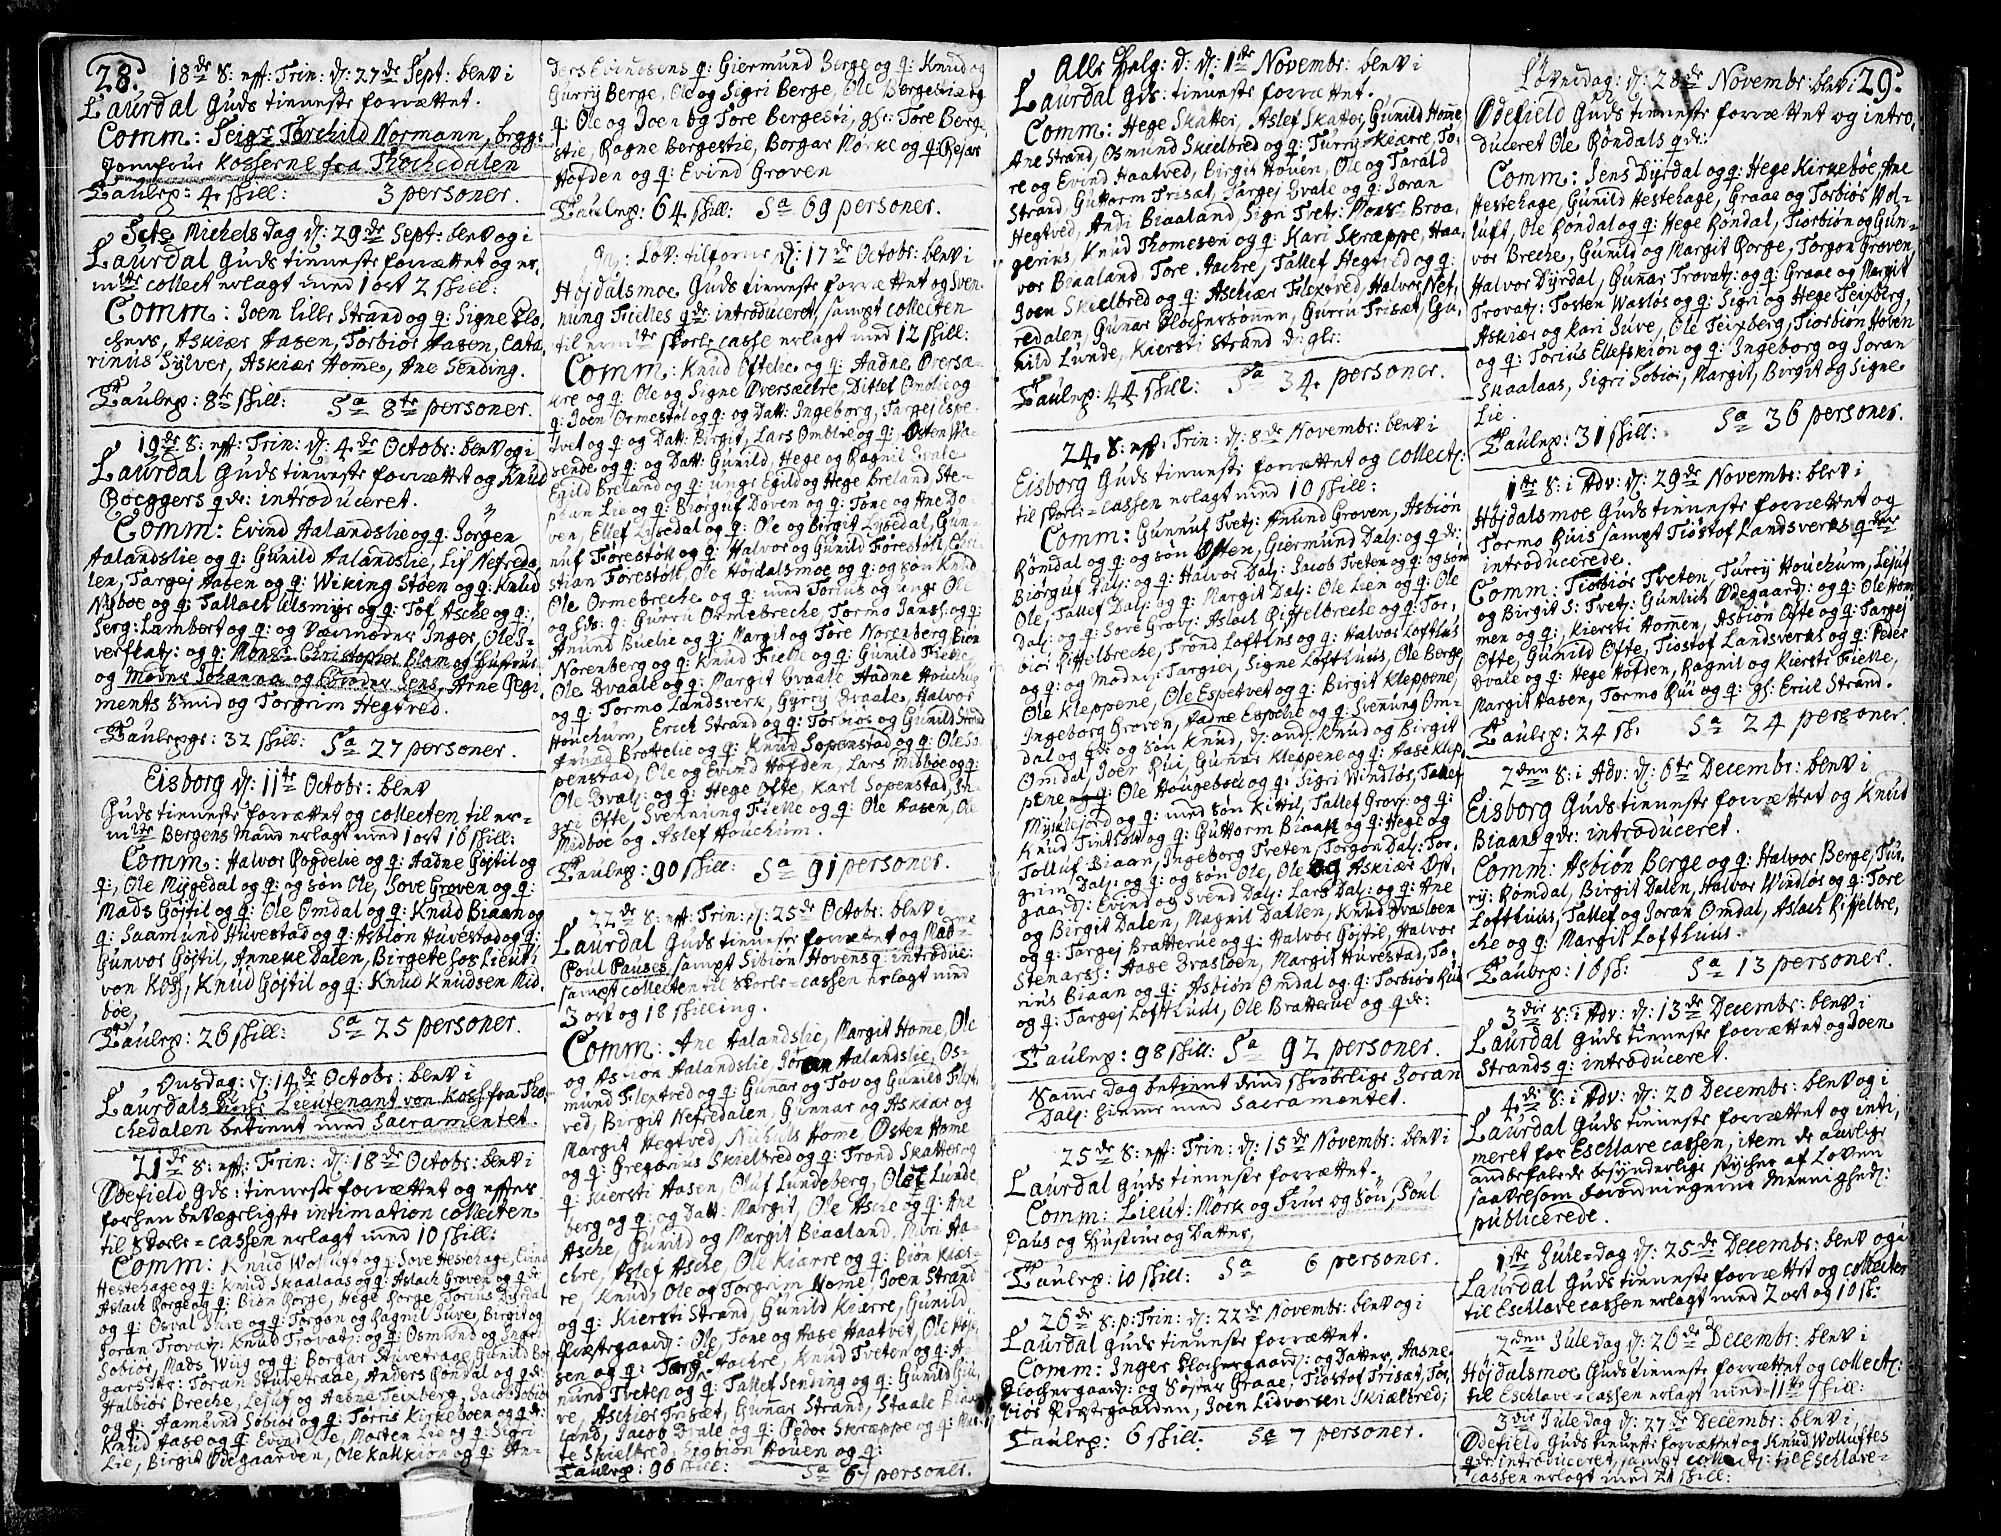 28.
18de S: eff: Trin: d: 27de Sept: blev i
Laurdal Guds tienneste forrættet.
Comm: Seigr Torchild Normann, begge
Jomfruer Kosserne fra Thochedalen
Taulep: 4 skill: 3 personer.
Ste Michels Dag d: 29de Sept: blev og i
Laurdal Guds tienneste forrættet og
collect erlagt med 1 ort 2 skill:
Comm: Joen Lille Strand og q: Signe Blo-
chers, Askiær Aasen, Torbiør Aasen, Cata-
rinus Sylver, Askiær Home, Ane Sending.
Taulep: 8te skill: Sa 8te personer.
19de S: eff: Trin: d: 4de Octobr: blev og i
Laurdal Guds tienneste forrættet og Knud
Bøeggers qde: introduceret.
Comm: Evind Aalandslie og q: Jørgen
Aalandslie og q: Gunild Aalandslie, Lif Nefreda-
len, Targej Aasen og q: Wiking Støen og q: Knud
Nysboe og q: Tallach Ulsmyr og q: Tof Asche og q:
Serg: Lambert og q: og Værmoder Inger, Ole B-
verflatj: og q: Monsr Christopher Blom og Hustrue
og Moder Johanna og Broder Jens, Arne Regi-
ments Smid og Torgrim Hegtved.
Taulep: 32 skill: Sa 27 personer.
Eisborg d: 11te Octobr: blev
Guds tienneste forrættet og collecten til er-
mlte Bergens Mand erlagt med 1 ort 16 skill:
Comm: Halvor Rogdelie og q: Aadne Gøjtil og
q:, Ole Mygedal og q: og søn Ole, Sove Groven og q:
Mads Gøjtil og q: Ole Omdal og q: Knud Biaan og
q: Saamund Huvestad og q: Asbiøn Huvestad og q:
Gunvor Gøjtil, Anneke Dalen, Birgete hos Lieut:
von Koss, Knud Gøjtil og q: Knud Knudsen Mid-
bøe,
Taulep: 26 skill: Sa 25 personer.
Onsdag: d: 14de Octobr: blev i
Laurdals Lieutenant von Koss fra Tho-
chedalen betient med Sacramentet.
21de S: eff: Trin: d: 18de Octobr: blev i
Ødefield Gds: tienneste forrættet og efter
forhen bevægeligste intimation collecten
til Skole-cassen erlagt med 10 skill:
Comm: Knud Wolluft og q: Sove Hestehage, Evind
Hestehage og q: Knud Skaalaas og q: Aslach Groven og q de
Aslach Rorge og q: Biøn Rorge, Hege Rorge, Torius Dyrdal
og q: Osval Juve og q: Torgon og Ragnil Juve, Birgit og
Joran Trovatj: Knud Trovatj: og q: Osmund og Inger
Sobiør, Mads Wiig og q: Borgar Huvetraae, Gunild Bor-
garsdtr: Joran Stuvetraae, Anders Røndal og qde:
Halbiør Breche, Lejuf og Aadne Teixberg, Jacob Sobiør
og q: Aamund Sobiør og q: Torris Kirkeboen og qde:
Knud Aase og q: Evind Lie, Morten Lie og q: Sigri
Lie, Birgit Ødegaarden, Ole Kalkkiøn og q: An-
ders Evindsens q: Giermund Berge og q: Knud og
Gurry Berge, Ole og Sigri Berge, Ole Bergestie og
q: Ole og Joen og Tore Bergesti, gl: Tore Berge-
stie, Ragne Bergestie, Borgar Mørke og q: Rejar
Hofden og q: Evind Groven
Taulep: 64 skill: Sa 69 personer.
Lov: tilforne d: 17de Octobr: blev i
Højdalsmoe Guds tienneste forrættet og Sven-
nung Fielles qde: introduceret, sampt collecten
til ermlte skole casse erlagt med 12 skill:
Comm: Knud Oftelie og q: Aadne Oversa-
kre og q: Ole og Signe Oversaekre, Ditlef Omlie og
q: Joen Ormestøl og q: og Datt: Ingeborg, Targej Espe-
tvet og q: og Datt: Birgit, Lars Omblie og q: Østen Wa-
sende og q: og Datt: Gunild, Hege og Ragnil Dvale
Egild Breland og q: unge Egild og Hege Breland, Ste-
phan Lie og q: Biørguf Doven og q: Tone og Ane Do-
ven, Ellef Lysedal og q: Ole og Birgit Lysedal, Gun-
nuf Førestøll og q: Halvor og Gunild Førestøll, Chri-
stian Førestøll, Ole Højdalsmoe og q: og søn Knud
Ole Ormebreche og q: med Torius og unge Ole
q: Gurru Ormebreche, Tormo Janss: og q:
Anund Buelie og q: Margit og Tore Norenberg, Biøn
Norenberg og q: Knud Fielle og q: Gunild Fielle
Ole Dvaale og q: Margit Dvaale, Aadne Houchum
og q: Tormo Landsverk, Gyrry Dvaale, Halvor
Houchum, Erich Strand og q: Tormos og Gunild Strand
Anund Brottelie og q: Knud Sopenstad og q: Ole So-
penstad, Ole og Evind Hofden, Lars Midboe og q:
Ole Dvalj: og q: Hege Ofte, Karl Sopenstad, In-
gri Ofte, Svennung Fielle og q: Ole Aasen, Ole
Midboe og Aslef Houchum.
Taulep: 90 skill: Sa 91 personer.
22de S: eff: Trin: d: 25de Octobr: blev i
Laurdal Guds tienneste forrættet og Madme
Poul Pauses, sampt Sibiøn Hovens q: introduc:
sampt collecten til Skole-cassen erlagt med
3 ort og 18 skilling.
Comm: Ane Aalandslie, Margit Home, Ole
og Asbiøn Aalandslie, Joran Aalandslie, Os-
mund Flextved og q: Gunar og Tov og Gunild Flext-
ved, Birgit Nefredalen, Gunnar og Askiær og
Margit Hegtved, Nichuls Home, Østen Home
og q: Gregorius Skielbred og q: Trond Skatter og
q: Kiersti Aasen, Oluf Lundeberg, Ole Lunde-
berg og q: og Datt: Margit, Ole Asche og q: Ane
Asche, Gunild og Margit Biaaland, Mari Aa-
chre, Aslef Asche, Ole Kiærre og q: Biøn Kiær-
re, Knud, Ole og Torgrim Home, Joen Strand
og q: Kiersti Strand, Gunild Kiærre, Gunild
Præstegaard: Ole, Tone og Aase Haatvet, Ole Høje-
sen og q: Targej Aachre, Knud Tveten og q: A-
nund Tveten og q: Tallef Sending og q: Gunild Juu-
ve, Aschiør Trisæt, Gunnar Strand, Staale Biaa-
land, Jacob Dvale og q: Peder Skræppe og q:
te Skielbred, Sigbiøn Hoven og q:
Taulep: 96 skill: Sa 67 personer.
Alle Helg: d: d: 1ste Novembr: blev i
Laurdal Gds: tienneste forrættet.
Comm: Hege Skatter, Aslef Skatter, Gunild Home,
Ane Strand, Osmund Skielbred og q: Turry Kiærre, To-
re og Evind Haatved, Birgit Hoven, Ole og Tarald
Strand, Guttorm Trisæt, Targej Dvale og q: Joran
Hegtved, Andi Biaaland, Sign Tretj: Monsr Broa-
gerius, Knud Thomesen og q: Kari Skræppe, Haa-
vor Biaaland, Tore Aachre, Tallef Hegtved og q:
Joen Skielbred og q: Aschiær Flextved, Halvor Nef-
redalen, Gunnar Blochersønen, Gurru Trisæt, Gu-
nild Lunde, Kiersti Strand d: gle:
Taulep: 44 skill: Sa 34 personer.
24 S: eff: Trin: d: 8de Novembr: blev i
Eisborg Guds tienneste forrættet og collect:
til skole-cassen erlagt med 10 skill:
Comm: Gunnuf Tvetj: Anund Groven, Asbiøn
Rømdal og q: og søn Østen, Giermund Dalj: og qde:
Biørguf Dalj: og q: Halvor Dalj: Jacob Tveten og q: og søn
Ole, Tallef Dalj: og q: Margit Dalj: Ole Lien og q: Ole
Dalj: og q: Sove Grovj: Aslach Riffelbreche og q: Tor-
biør Riffelbreche, Trond Lofthus og q: Halvor Lofthus
og q: og Moder: Targier, Signe Lofthuus, Ole Berge,
Ole Kleppene, Ole Espetvet og q: Birgit Kleppene,
Ingeborg Groven, Aadne Espelie og q: Svenung Om-
dal og qde: og søn Knud, d: and: Knud og Birgit
Omdal, Joen Rui, Gunar Kleppene og q: Aase Klep-
pene og q: Ole Hougeboel og q: Sigri Windløs, Tallef
Mjaalefjord og q: med søn Kittil, Tallef Grovj: og q:
Knud Tintholt og q: Guttorm Biaan og q: Hege og
Tolluf Biaan, Ingeborg Tveten, Torgon Dalj: Tor-
grim Dalj: og q: og søn Ole, Ole og Askiær Ødi-
gaard: Evind og Svend Dalj: Lars Dalj: og q: Ane
og Birgit Dalen, Magnil Dallen, Knud Drasloen
og q: Targej Bratterue og q: Halvor Gøjtil, Halvor
Stenarss: Aase Drasloen, Margit Huvestad, To-
rius Biaan og q: Asbiøn Omdal og q: Torbiør Rui
og q: Targej Lofthuus, Ole Bratterue og q de:
Taulep: 98 skill: Sa 92 personer.
Samme Dag betient dend skrøbelige Joran
Dalj: hiemme med Sacramentet.
25de S: eff: Trin: d: 15de Novembr: blev i
Laurdal Guds tienneste forrættet.
Comm: Lieut: Mörk og Frue og Søn, Poul
Paus og Hustrue og Datter,
Taulep: 10 skill: Sa 6 personer.
26de S: p: Trin: d: 22de Novembr: blev og i
Laurdal Guds tienneste forrættet.
Comm: Inger Blochergaard: og Datter, Aasne
Blochergaard: og Søster Graae, Tiostof Trisæt, Tor-
biør Præstegaarden, Joen Lidvorsen Skiælbred,
Taulep: 6 skill: Sa 7 personer.
29.
Løverdag: d: 28de Novembr: blev i
Ødefield Guds tienneste forrættet og intro-
duceret Ole Røndals qde:
Comm: Jens Dyrdal og q: Hege Kirkebøe, Ane
Hestehage, Gunild Hestehage, Graae og Torbiør Wol-
luft, Ole Røndal og q: Hege Røndal, Tiorbiøn og Gun-
vor Breche, Gunild og Margit Rorge, Torgon Groven,
Halvor Dyrdal, Gunnar Trovatj: og q: Graae og Margit
Trovatj: Tosten Wasløs og q: Sigri og Hege Teixberg,
Askiær og Kari Juve, Ole Teixberg, Tiorbiøn Hoven
og q: Torius Ellefskiøn og q: Ingeborg og Joran
Skaalaas, Sigri Sobiør, Margit, Birgit og Signe
Lie.
Taulep: 31 skill: Sa 36 personer.
1ste S: i Adv: d: 29de Novembr: blev i
Højdalsmoe Guds tienneste forrættet og
Tormo Ruis sampt Tiostof Landsverks qder
introducerede.
Comm: Tiorbiør Tveten, Turry Houchum, Lejul
og Birgit S: Tvetj: Gunlich Ødegaard: og q: Ole Hom-
men og q:, Kiersti Homen, Asbiøn Ofte og q: Targej
Ofte, Gunild Ofte, Tiostof Landsverk og q: Peder
Dvale og q: Hege Hofden, Ragnil og Kiersti Fielle,
Margit Aasen, Tormo Rui og q: gl: Erich Strand.
Taulep: 24 sk. Sa 24 personer.
2den S: i Adv: d: 6te Decembr: blev i
Eisborg Guds tienneste forrættet og Knud
Biaans qde: introduceret.
Comm: Asbiøn Berge og q: Halvor Berge, Tur-
ry: Rømdal, Birgit Dalen, Halvor Windløs og q: Tore
Lofthuus, Tallef og Joran Omdal, Aslach Riffelbre-
che og q: Margit Lofthuus.
Taulep: 16 sk: Sa 13 personer.
3die S: i Adv: d: 13de Decembr: blev i
Laurdal Guds tienneste forrættet og Joen
Strands q: introduceret.
4de S: i Adv: d: 20 Decembr: blev og i
Laurdal Guds tienneste forrættet og inti-
meret for Esclave cassen, item de aarlige
anbefalede besynderlige stycher af Loven
saavelsom Forordningerne Menighed:
publicerede.
1ste Jule-dag d: 25de Decembr: blev og i
Laurdal Guds tienneste forrættet og collecten
til Esclave cassen erlagt med 2 ort og 10 sk:
2den Juledag d: 26de Decembr: blev i
Højdalsmoe Guds tienneste forrættet og collect:
til Esclave-cassen erlagt med 11te skill:
3die Juledag d: 27de Decembr: blev i
Ødefield Guds tienneste forrættet og Knud Wolluftes
qde: introduceret, sampt collect: til Esclave-
cassen erlagt med 21 skill: